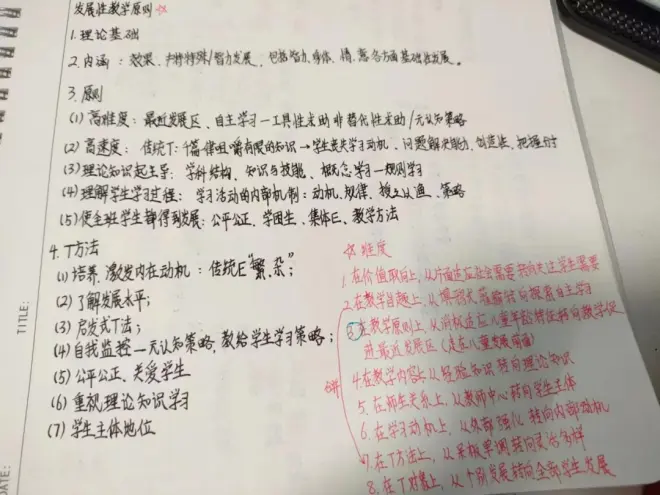 发展性教学原则 ☆
1. 理论基础
2. 内涵：效果、智力发展、包括智力、身体、情、意各方面基础性发展。
3. 原则
(1) 高难度：最近发展区、自主学习—工具性求助 非替代性求助/元认知策略
(2) 高速度：传统T：千篇一律咀嚼有限的知识→学生丧失学习动机、问题解决能力、创造法、把握时
(3) 理论知识起主导：学科结构、知识与技能、概念学习—规则学习
(4) 理解学生学习过程：学习活动的内部机制：动机、规律、策略
(5) 使全班学生都得到发展：公平公正、学困生、集体E、教学方法
4. T方法
(1) 培养、激发内在动机：传统E“繁、杂”；
(2) 了解发展水平；
(3) 启发式T法；
(4) 自我监控—元认知策略，教给学生学习策略；
(5) 公平公正、关爱学生
(6) 重视理论知识学习
(7) 学生主体地位
☆ 维度
1. 在价值取向上，从片面适应社会需要转向关注学生需要
2. 在教学旨趣上，从填鸭式灌输转向探索自主学习
3. 在教学原则上，从消极适应儿童年龄特征转向教学促
进最近发展区（走在儿童发展前面）
4. 在教学内容上，从经验知识转向理论知识
5. 在师生关系上，从教师中心转向学生主体
6. 在学习动机上，从外部强化转向内部动机
7. 在T方法上，从呆板单调转向灵活多样
8. 在T对象上，从个别发展转向全部学生发展
TITLE:
DATE: